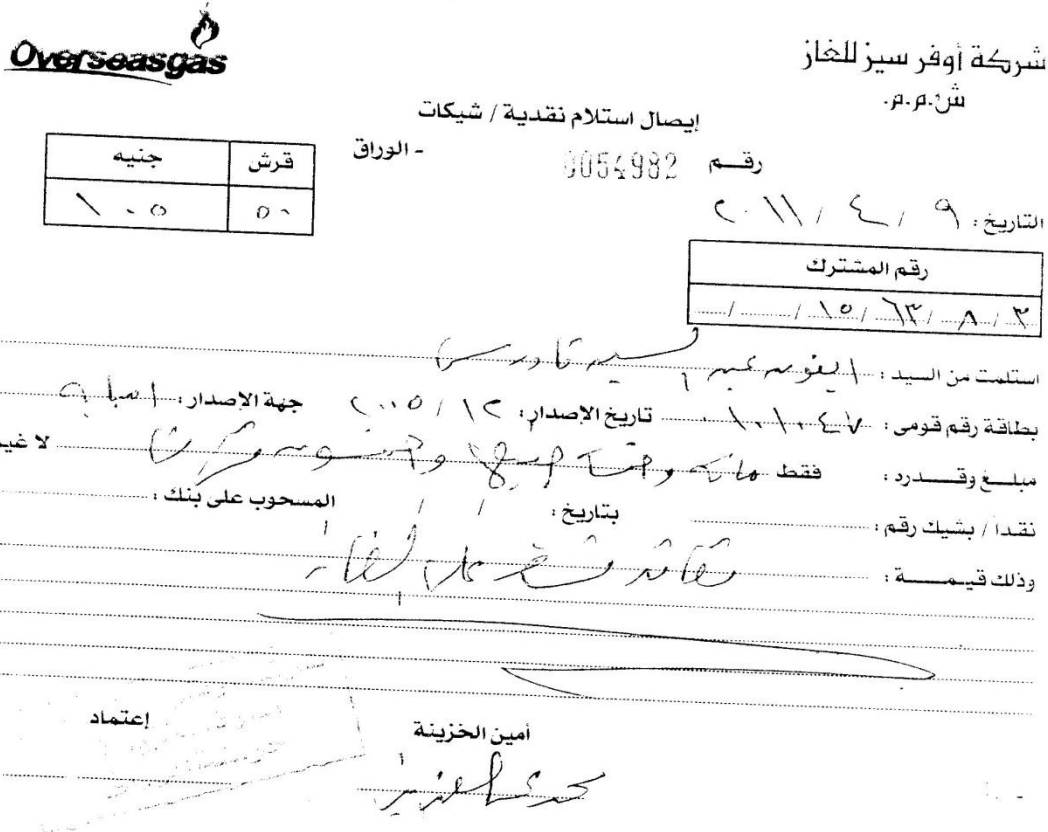 Overseasgas
شركة أوفر سيز للغاز
ش.م.م.
إيصال استلام نقدية / شيكات
- الوراق
رقـم 0054982
قرش جنيه
٥٠ ١٠٥
التاريخ: ٩ / ٤ / ٢٠١١
رقم المشترك
٣ / ٨ / ٦٣ / ١٥ / /
استلمت من السيد :
بطاقة رقم قومى : ٠١٠١٠٤٧ تاريخ الإصدار: ١٢ / ٢٠٠٥ جهة الإصدار:
مبلــغ وقــدره : فقط مائة وخمسة جنيها وخمسون قرش لا غير
نقدا / بشيك رقم : بتاريخ : / / المسحوب على بنك :
وذلك قيمــة :
أمين الخزينة
إعتماد